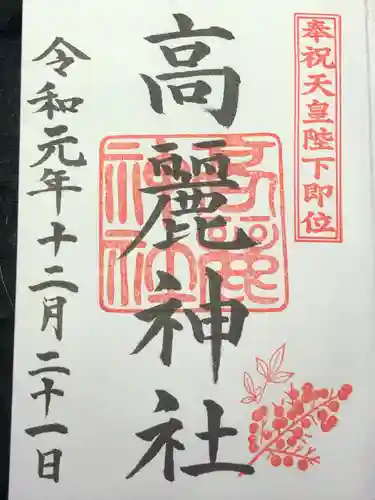 奉祝天皇陛下即位
高麗神社
令和元年十二月二十一日